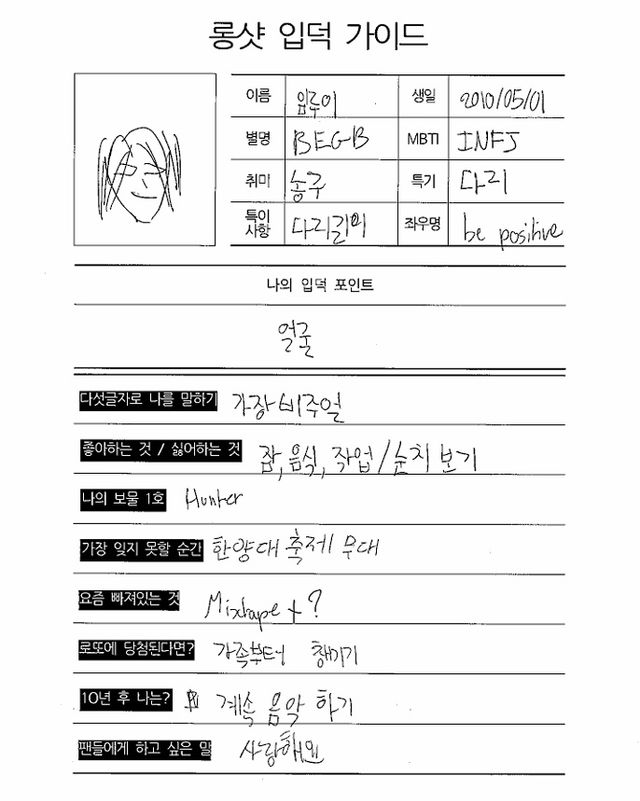 롱샷 입덕 가이드
이름 임루이 생일 2010/05/01
별명 BEG-B MBTI INFJ
취미 농구 특기 다리
특이사항 다리길이 좌우명 be positive
나의 입덕 포인트
얼굴
다섯글자로 나를 말하기 가장비주얼
좋아하는 것 / 싫어하는 것 잠, 음식, 작업 / 눈치 보기
나의 보물 1호 Hunter
가장 잊지 못할 순간 한양대 축제 무대
요즘 빠져있는 것 Mixtape + ?
로또에 당첨된다면? 가족부터 챙기기
10년 후 나는? 계속 음악 하기
팬들에게 하고 싶은 말 사랑해요